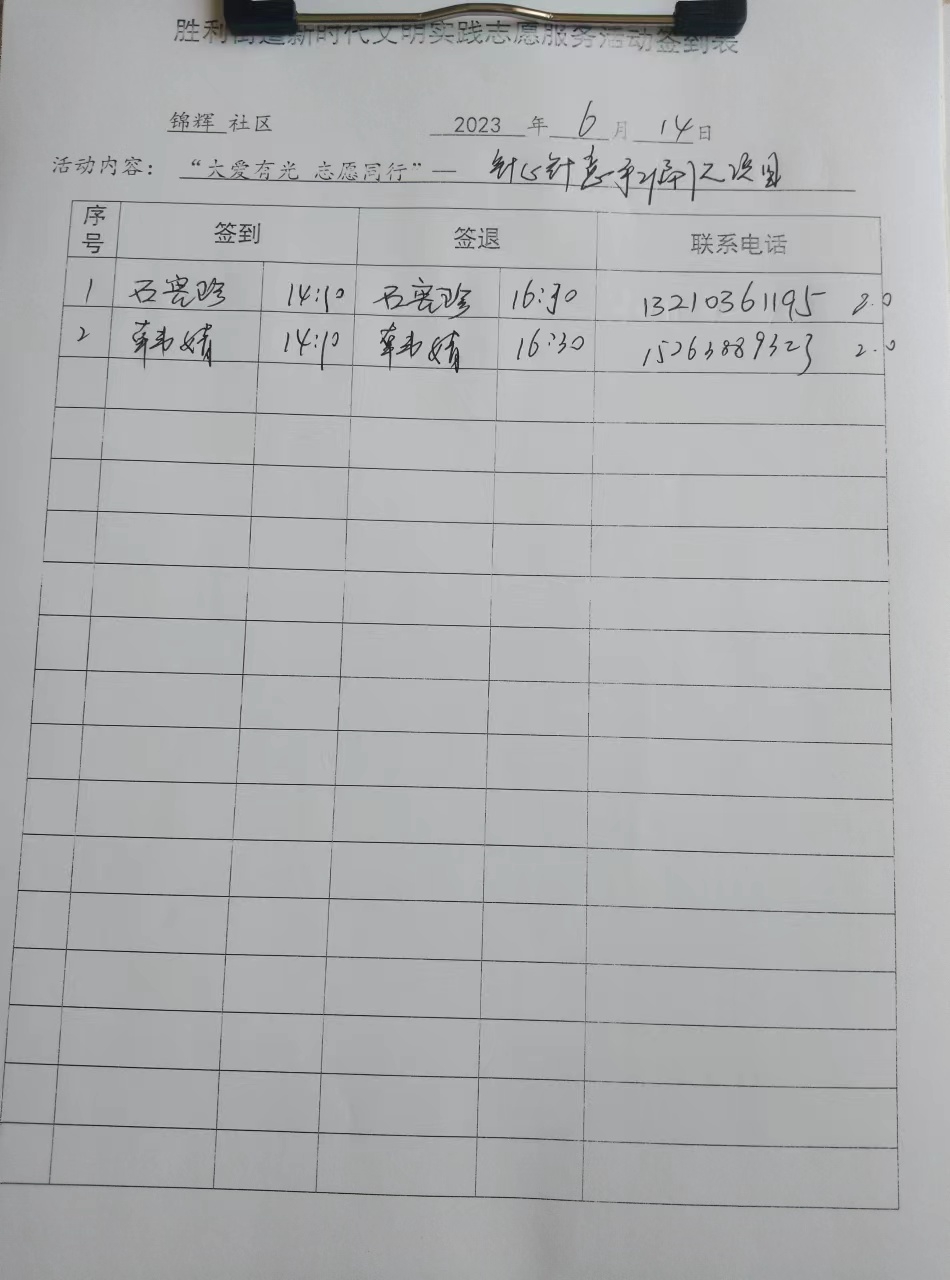 胜利街道新时代文明实践志愿服务活动签到表
锦辉 社区 2023 年 6 月 14 日
活动内容： “大爱有光 志愿同行”—
序号 签到 签退 联系电话
1 石 珍 14:10 石 珍 16:30 13210361195 2.0
2 韩婧 14:10 韩婧 16:30 15263889323 2.0